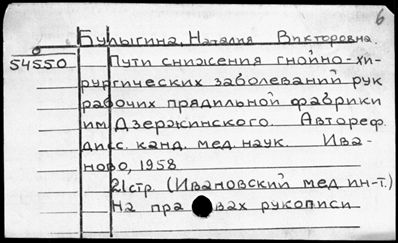 6
Булыгина, Наталия Викторовна.
54550
Пути снижения гнойно-хи-
рургических заболеваний рук
рабочих прядильной фабрики
им. Дзержинского. Автореф.
дисс. канд. мед. наук. Ива-
ново, 1958
21стр. (Ивановский мед. ин-т.)
На пра вах рукописи